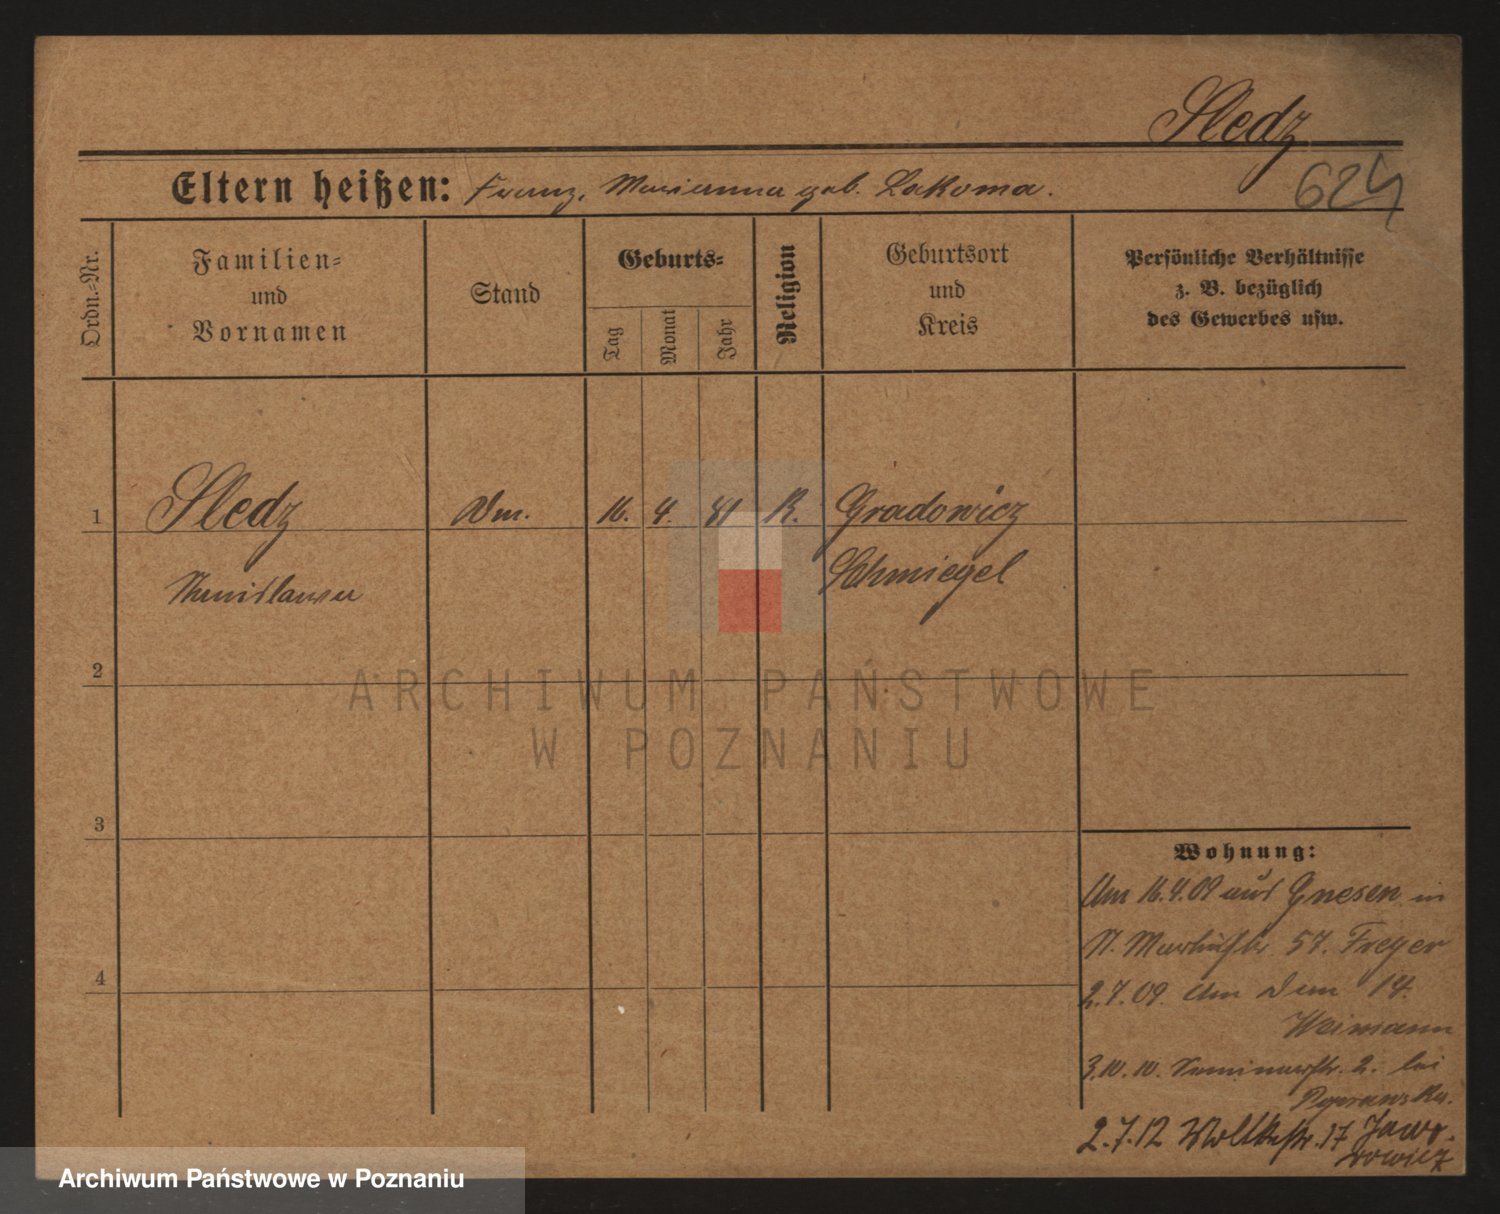 Sledz
Eltern heißen: Franz, Marianna geb. Lakoma.
624
Ordn.-Nr.
Familien-
und
Vornamen
Stand
Geburts-
Tag
Monat
Jahr
Religion
Geburtsort
und
Kreis
Persönliche Verhältnisse
z. B. bezüglich
des Gewerbes usw.
1 Sledz 16. 4. 81 K. Gradowicz
Stanislawa Schmiegel
2
3
4
ARCHIWUM PAŃSTWOWE
W POZNANIU
Wohnung:
Am 16.4.09 aus Gnesen in
St. Martinstr. 57. Freyer
2.7.09. Am Dom 14.
Weimann
3.10.10. Seminarstr. 2. bei
2.7.12 Moltkestr. 17 Jawo-
rowicz
Archiwum Państwowe w Poznaniu